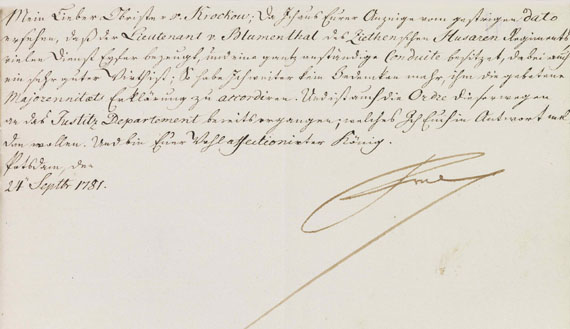 Mein Lieber Obrister v. Krockow; Da Ich aus Eurer Anzeige vom gestrigen dato
ersehen, daß der Lieutenant v. Blumenthal des Ziethenschen Husaren Regiments
vielen Dienst Eyfer bezeugt, und eine gantz anständige Conduite besitzet, dabei auch
ein sehr guter Wirth ist; So habe Ich weiter kein Bedenken mehr, ihm die gebetene
Majorennitæt Erklärung zu accordiren. Und ist auch die Ordre dieserwegen
an das Justitz Departement bereits ergangen; welches Ich Euch in Antwort mel
den wollen. Und bin Euer Wohl affectionirter König.
Potsdam, den
24 Septbr 1781.